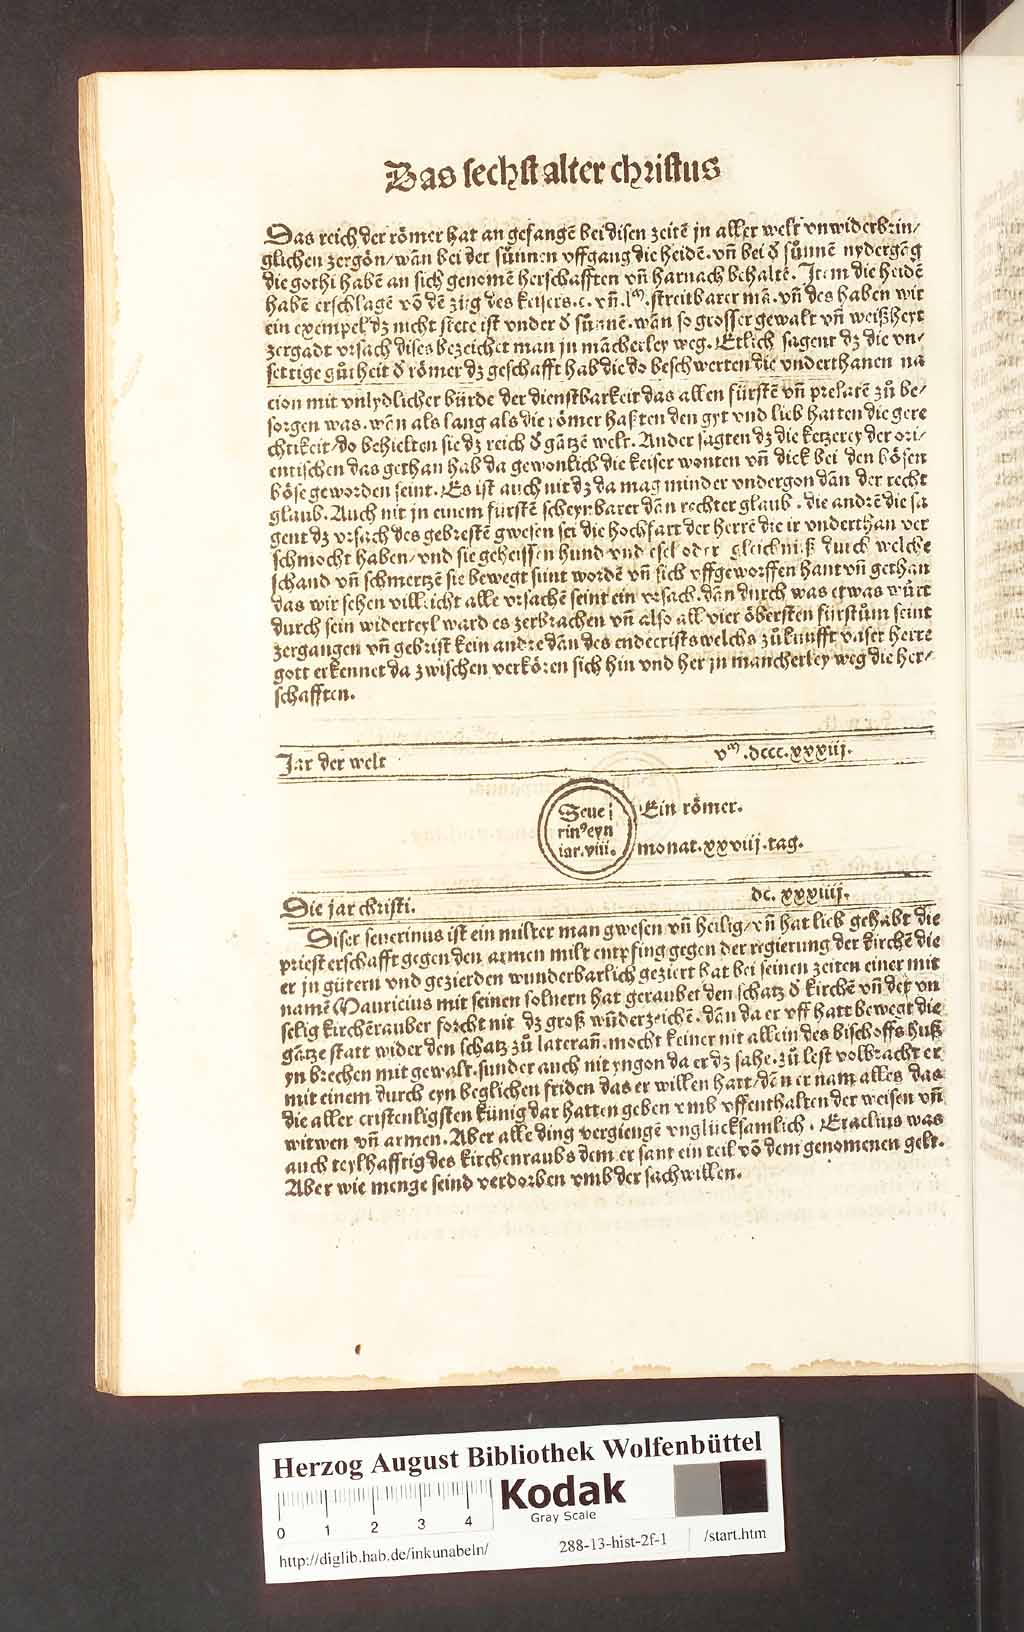 Das sechst alter christus
Das reich der römer hat an gefangē bei disen zeitē jn aller welt vnwiderbrin/
glichen zergön/wan bei der sůnnen vffgang die heidē.vñ bei ð sůnnē nydergāg
die gothi habē an sich genomē herschafften vñ harnach behaltē. Item die heidē
habē erschlagē vō dē züg des keisers.c.vñ.lᵐ.streitbarer mā.vñ des haben wir
ein exempel dz nicht stete ist vnder ð sůnnē.wān so grosser gewalt vñ weißheyt
zergadt vrsach dises bezeichet man jn mācherley weg.Etlich sagent dz die vn/
settige gůtheit ð römer dz geschafft hab die do beschwerten die vnderthanen na
cion mit vnlydlicher bürde der dienstbarkeit das allen fürstē vñ prelatē zů be/
sorgen was.wān als lang als die römer haßten den gyt vnd lieb hatten die gere
chtikeit/do behielten sie dz reich ð gātzē welt.Ander sagten dz die ketzerey der ori/
entischen das gethan hab da gewonlich die keiser wonten vñ dick bei den bösen
böse geworden seint.Es ist auch nit dz da mag minder vndergon dān der recht
glaub.Auch nit jn einem fürstē scheynbarer dān rechter glaub.die andrē die sa
gent dz vrsach des gebrestē gwesen sei die hochfart der herrē die ir vnderthan ver
schmocht haben/vnd sie geheissen hund vnd esel oder gleichniß durch welche
schand vñ schmertzē sie bewegt sint wordē vñ sich vffgeworffen hant vñ gethan
das wir sehen villicht alle vrsachē seint ein vrsach.dān durch was etwas würt
durch sein widerteyl ward es zerbrachen vñ also all vier öbersten fürstům seint
zergangen vñ gebrist kein andre dān des endecrists welchs zůkunfft vnser herre
gott erkennet da zwischen verkören sich hin vnd her jn mancherley weg die her/
schafften.
Jar der welt vᵐ.dccc.xxxiij.
Seue
rin⁹eyn
iar.viii.
Ein römer.
monat.xxviij.tag.
Die jar christi. dc.xxxiiij.
Diser seuerinus ist ein milter man gwesen vñ heilig/vñ hat lieb gehabt die
priesterschafft gegen den armen milt entpfing gegen der regierung der kirchē die
er jn gütern vnd gezierden wunderbarlich geziert hat bei seinen zeiten einer mit
namē Mauricius mit seinen solnern hat geraubet den schatz ð kirchē vñ der vn
selig kirchērauber forcht nit dz groß wūderzeichē.dān da er vff hatt bewegt die
gātze statt wider den schatz zů laterañ.mocht keiner nit allein des bischoffs huß
yn brechen mit gewalt.sunder auch nit yngon da er dz sahe.zů lest volbracht er
mit einem durch eyn beglichen friden das er willen hatt/dēn er nam alles das
die aller cristenligsten künig dar hatten geben vmb vffenthalten der weisen vñ
witwen vñ armen.Aber alle ding vergiengē vnglücksamlich.Eraclius was
auch teylhafftig des kirchenraubs dem er sant ein teil vō dem genomenen gelt.
Aber wie menge seind verdorben vmb der sach willen.
Herzog August Bibliothek Wolfenbüttel
Kodak
Gray Scale
0 1 2 3 4
http://diglib.hab.de/inkunabeln/ 288-13-hist-2f-1 /start.htm